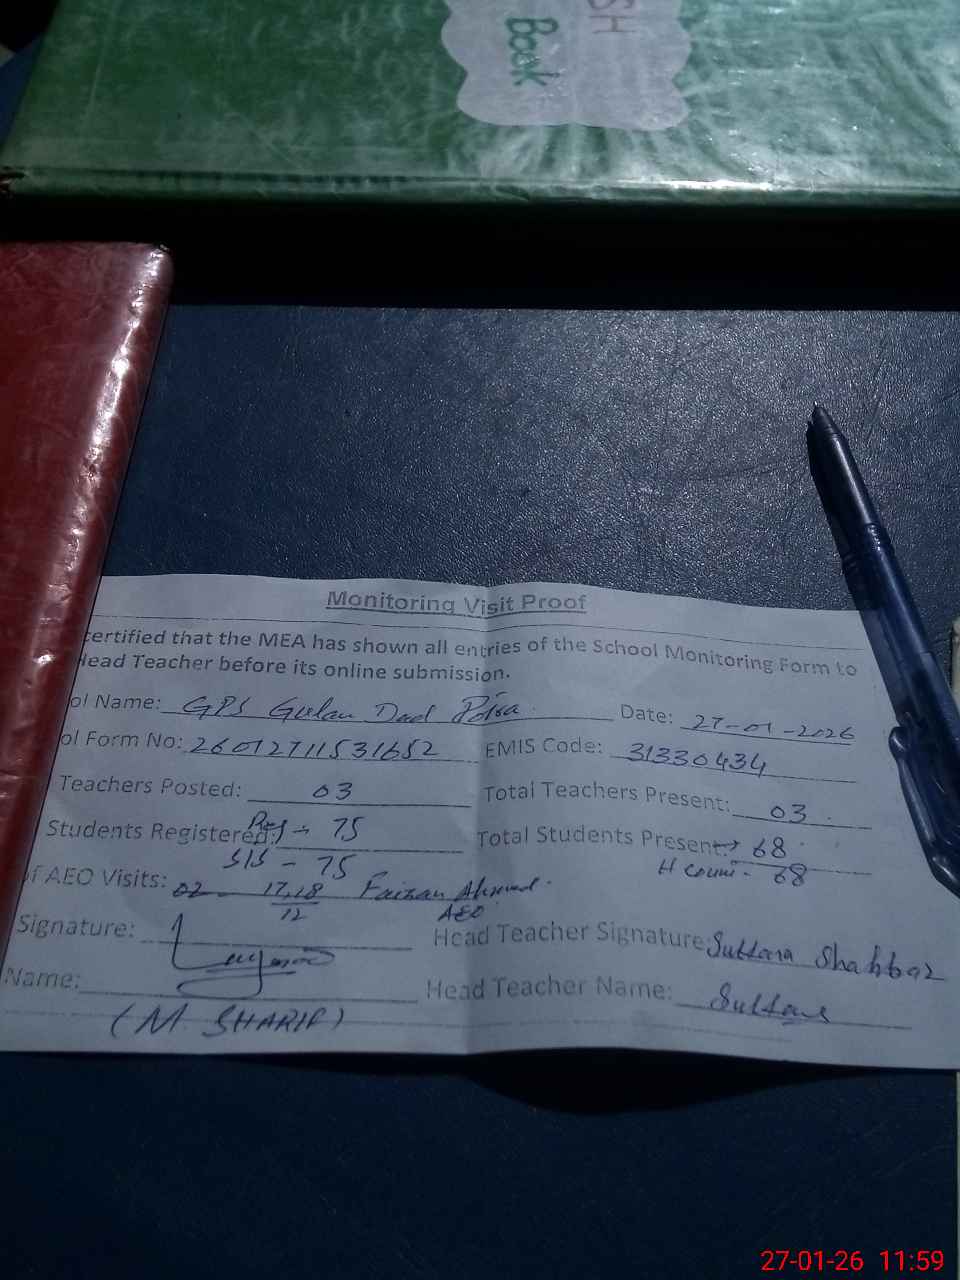 SH
Book
Monitoring Visit Proof
certified that the MEA has shown all entries of the School Monitoring Form to
Head Teacher before its online submission.
ol Name: GPS Gulan Dad Date: 27-01-2026
ol Form No: 26012711531652 EMIS Code: 31330434
Teachers Posted: 03 Total Teachers Present: 03
Students Registered: Reg → 75 Total Students Present: → 68
SIS - 75 H count - 68
of AEO Visits: 02 17,18/12 Faizan Ahmad
AEO
Signature: Head Teacher Signature: Sultana Shahbaz
Name: Head Teacher Name: Sultana
(M. SHARIF)
27-01-26 11:59